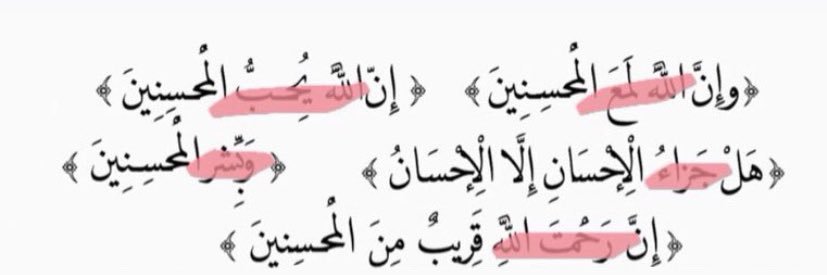 ﴿وَإِنَّ اللَّهَ لَمَعَ الْمُحْسِنِينَ﴾ ﴿إِنَّ اللَّهَ يُحِبُّ الْمُحْسِنِينَ﴾
﴿هَلْ جَزَاءُ الْإِحْسَانِ إِلَّا الْإِحْسَانُ﴾ ﴿وَبَشِّرِ الْمُحْسِنِينَ﴾
﴿إِنَّ رَحْمَتَ اللَّهِ قَرِيبٌ مِنَ الْمُحْسِنِينَ﴾